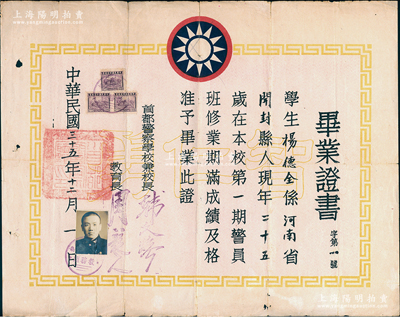 畢業證書
字第 號
學生楊德全係河南省
開封縣人現年二十五
歲在本校第一期警員
班修業期滿成績及格
准予畢業此證
首都警察學校兼校長
教育長
中華民國三十五年十二月一日